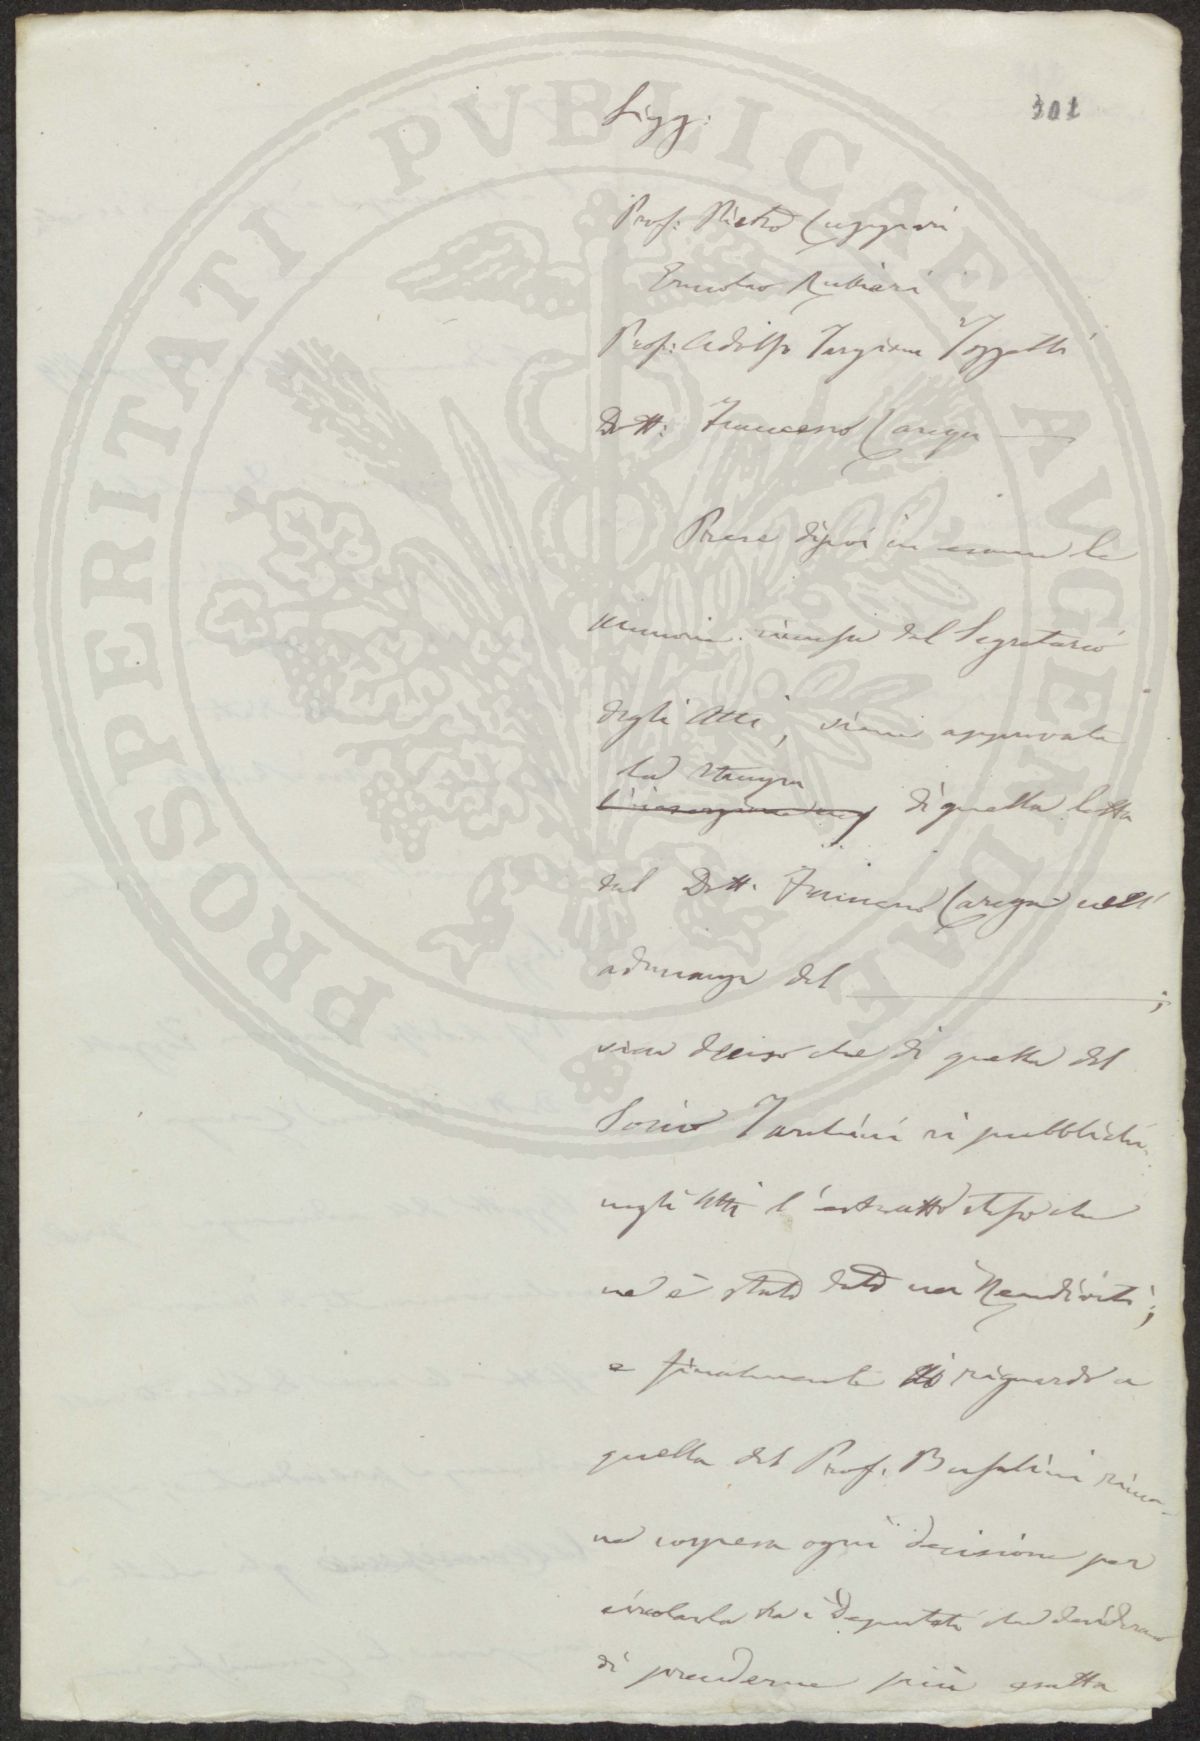 301
Sigg:
Prof: Pietro Cuppari
Ermolao Rubieri
Prof: Adolfo Targioni Tozzetti
Dott: Francesco Carega
Prese dipoi in esame le
memorie rimesse dal Segretario
degli Atti, viene approvata
la stampa
di quella letta
dal Dott. Francesco Carega nell'
adunanza del ;
vien deciso che di quella del
Socio Tartini si pubblichi
negli Atti l'estratto stesso che
ne è stato dato nei Rendiconti;
e finalmente riguardo a
quella del Prof. Bufalini rima-
ne sospesa ogni decisione per
circolarla tra i Deputati che desiderano
di prenderne più esatta
PROSPERITATI PVBLICAE AVGENDAE